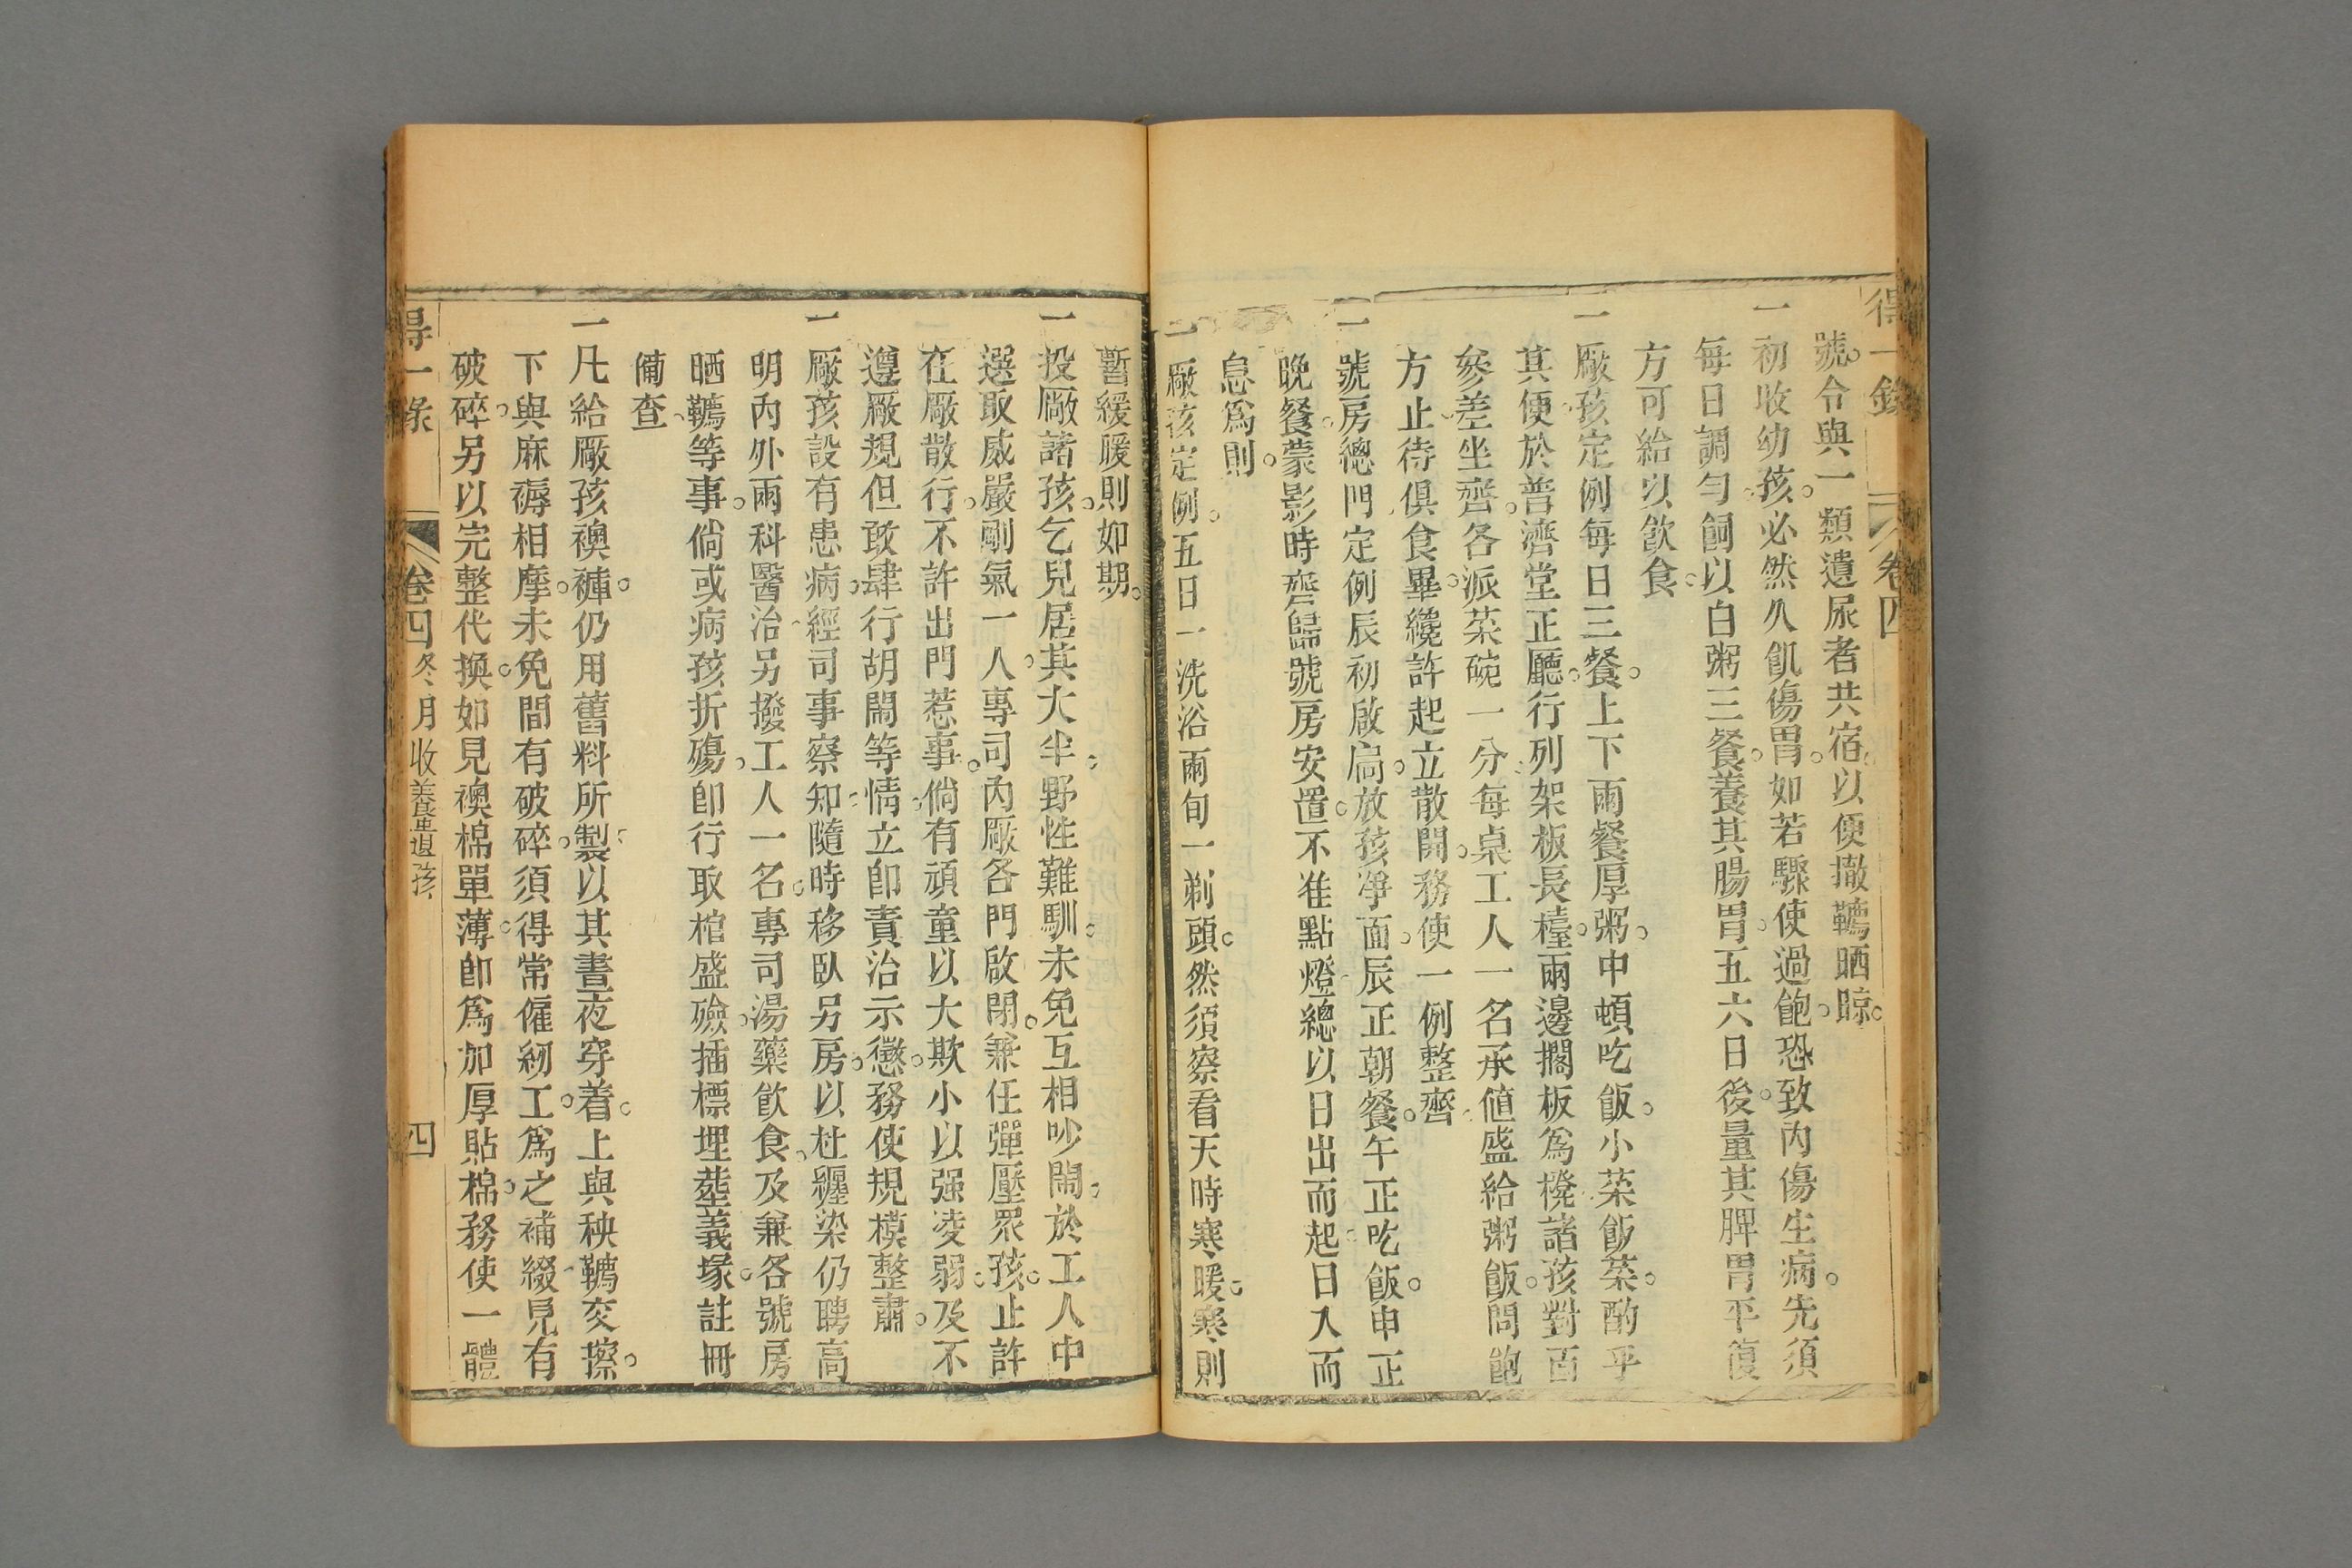 得一錄 卷四
號。令與一類遺尿者共宿。以便撤韉晒晾。
一初收幼孩。必然久飢傷胃。如若驟使過飽。恐致內傷生病。先須
每日調勻飼以白粥三餐。養其腸胃。五六日後。量其脾胃平復
方可給以飲食。
一廠孩定例每日三餐。上下兩餐厚粥。中頓吃飯。小菜飯菜。酌乎
其便。於普濟堂正廳。行列架板長檯。兩邊擱板為櫈。諸孩對面
參差坐齊。各派菜碗一分。每桌工人一名。承値盛給粥飯。問飽
方止。待俱食畢。纔許起立散開。務使一例整齊。
一號房總門。定例辰初啟扃。放孩凈面。辰正朝餐。午正吃飯。申正
晚餐。蒙影時齊歸號房安置。不准點燈。總以日出而起。日入而
息爲則。
一廠孩定例。五日一洗浴。兩旬一剃頭。然須察看天時寒暖。寒則
暫緩。暖則如期。
一投廠諸孩。乞兒居其大半。野性難馴。未免互相吵鬧。於工人中
選取威嚴剛氣一人。專司內廠各門啟閉。兼任彈壓眾孩。止許
在廠散行。不許出門惹事。倘有頑童以大欺小。以强凌弱。及不
遵廠規。但敢肆行胡鬧等情。立卽責治示懲。務使規模整肅。
一廠孩設有患病。經司事察知。隨時移臥另房。以杜纏染。仍聘高
明內外兩科醫治。另撥工人一名。專司湯藥飲食。及兼各號房
晒韉等事。倘或病孩折殤。卽行取棺盛殮。插標埋塟義塚。註冊
備查。
一凡給廠孩襖褲。仍用舊料所製。以其晝夜穿着。上與秧韉交擦。
下與麻褥相摩。未免間有破碎。須得常僱紉工。爲之補綴。見有
破碎。另以完整代換。如見襖棉單薄。卽爲加厚貼棉。務使一體
得一錄 卷四 冬月收養遺孩 四